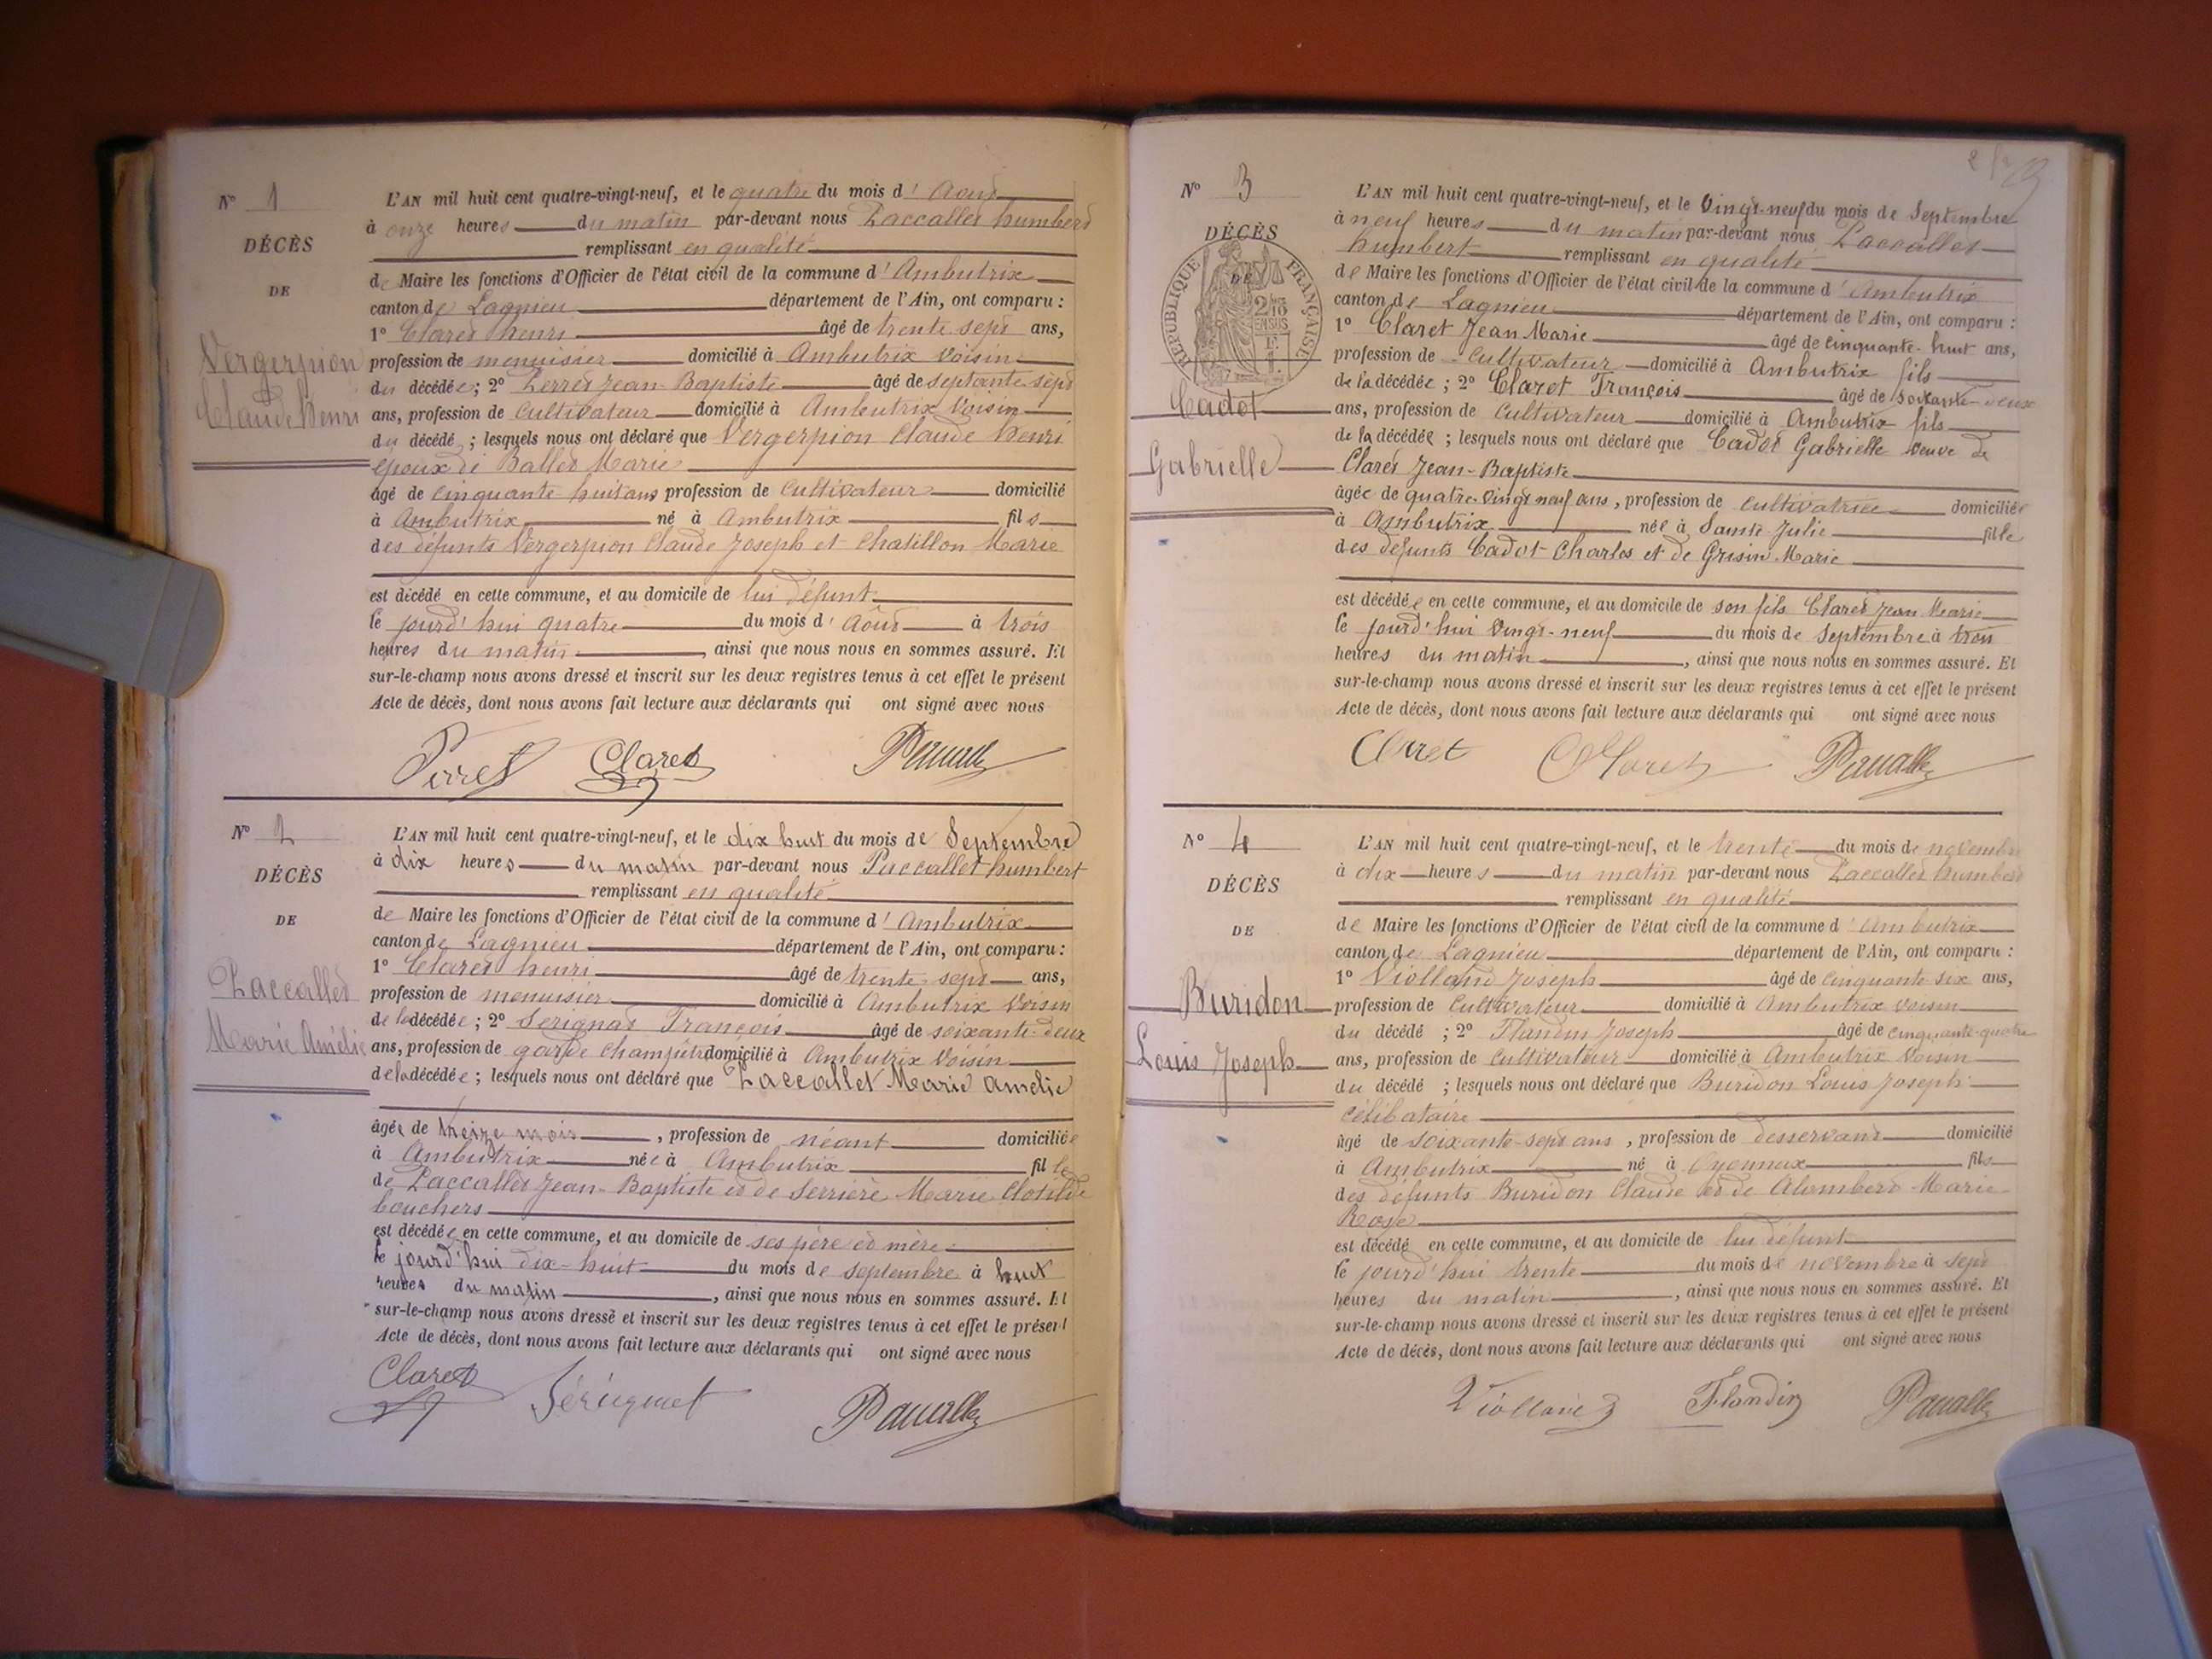 N° 1
DÉCÈS
DE
Vergerpion
Claude Henri
L'AN mil huit cent quatre-vingt-neuf, et le quatre du mois d'Août
à onze heures du matin par-devant nous Paccallet humbert
remplissant en qualité
de Maire les fonctions d'Officier de l'état civil de la commune d'Ambutrix
canton de Lagnieu département de l'Ain, ont comparu :
1° Claret henri âgé de trente sept ans,
profession de menuisier domicilié à Ambutrix voisin
du décédée ; 2° Perret Jean-Baptiste âgé de septante sept
ans, profession de Cultivateur domicilié à Ambutrix Voisin
du décédé ; lesquels nous ont déclaré que Vergerpion Claude henri
époux de Ballet Marie
âgé de cinquante huit ans profession de Cultivateur domicilié
à Ambutrix né à Ambutrix fils
des défunts Vergerpion Claude Joseph et Chatillon Marie
est décédé en cette commune, et au domicile de lui défunt
le jourd'hui quatre du mois d'Août à trois
heures du matin, ainsi que nous nous en sommes assuré. Et
sur-le-champ nous avons dressé et inscrit sur les deux registres tenus à cet effet le présent
Acte de décès, dont nous avons fait lecture aux déclarants qui ont signé avec nous
Perret Claret Paccallet
N° 2
DÉCÈS
DE
Paccallet
Marie Amélie
L'AN mil huit cent quatre-vingt-neuf, et le dix huit du mois de Septembre
à dix heures du matin par-devant nous Paccallet humbert
remplissant en qualité
de Maire les fonctions d'Officier de l'état civil de la commune d'Ambutrix
canton de Lagnieu département de l'Ain, ont comparu :
1° Claret henri âgé de trente sept ans,
profession de menuisier domicilié à Ambutrix voisin
de la décédée ; 2° Serignat François âgé de soixante-deux
ans, profession de garde champêtre domicilié à Ambutrix Voisin
de la décédée ; lesquels nous ont déclaré que Paccallet Marie amelie
âgée de treize mois, profession de néant domiciliée
à Ambutrix née à Ambutrix fille
de Paccallet Jean-Baptiste et de Serrière Marie Clotilde
bouchers
est décédée en cette commune, et au domicile de ses père et mère
le jourd'hui dix-huit du mois de Septembre à huit
heures du matin, ainsi que nous nous en sommes assuré. Et
sur-le-champ nous avons dressé et inscrit sur les deux registres tenus à cet effet le présent
Acte de décès, dont nous avons fait lecture aux déclarants qui ont signé avec nous
Claret Sérignat Paccallet
N° 3
DÉCÈS
DE
RÉPUBLIQUE FRANÇAISE
Cadot
Gabrielle
L'AN mil huit cent quatre-vingt-neuf, et le Vingt-neuf du mois de Septembre
à neuf heures du matin par-devant nous Paccallet
humbert remplissant en qualité
de Maire les fonctions d'Officier de l'état civil de la commune d'Ambutrix
canton de Lagnieu département de l'Ain, ont comparu :
1° Claret Jean Marie âgé de cinquante-huit ans,
profession de Cultivateur domicilié à Ambutrix fils
de la décédée ; 2° Claret François âgé de soixante-deux
ans, profession de Cultivateur domicilié à Ambutrix fils
de la décédée ; lesquels nous ont déclaré que Cadot Gabrielle veuve de
Claret Jean-Baptiste
âgée de quatre-vingt neuf ans, profession de cultivatrice domiciliée
à Ambutrix née à Sainte Julie fille
des défunts Cadot Charles et de Grisin Marie
est décédée en cette commune, et au domicile de son fils Claret Jean Marie
le jourd'hui Vingt-neuf du mois de Septembre à trois
heures du matin, ainsi que nous nous en sommes assuré. Et
sur-le-champ nous avons dressé et inscrit sur les deux registres tenus à cet effet le présent
Acte de décès, dont nous avons fait lecture aux déclarants qui ont signé avec nous
Claret Claret Paccallet
N° 4
DÉCÈS
DE
Buridon
Louis Joseph
L'AN mil huit cent quatre-vingt-neuf, et le trente du mois de novembre
à dix heures du matin par-devant nous Paccallet humbert
remplissant en qualité
de Maire les fonctions d'Officier de l'état civil de la commune d'Ambutrix
canton de Lagnieu département de l'Ain, ont comparu :
1° Violland Joseph âgé de cinquante six ans,
profession de Cultivateur domicilié à Ambutrix voisin
du décédé ; 2° Flandin Joseph âgé de cinquante-quatre
ans, profession de Cultivateur domicilié à Ambutrix Voisin
du décédé ; lesquels nous ont déclaré que Buridon Louis Joseph
célibataire
âgé de soixante-sept ans, profession de desservant domicilié
à Ambutrix né à Oyonnax fils
des défunts Buridon Claude et de Alombert Marie
Rose
est décédé en cette commune, et au domicile de lui défunt
le jourd'hui trente du mois de novembre à sept
heures du matin, ainsi que nous nous en sommes assuré. Et
sur-le-champ nous avons dressé et inscrit sur les deux registres tenus à cet effet le présent
Acte de décès, dont nous avons fait lecture aux déclarants qui ont signé avec nous
Violland Flandin Paccallet